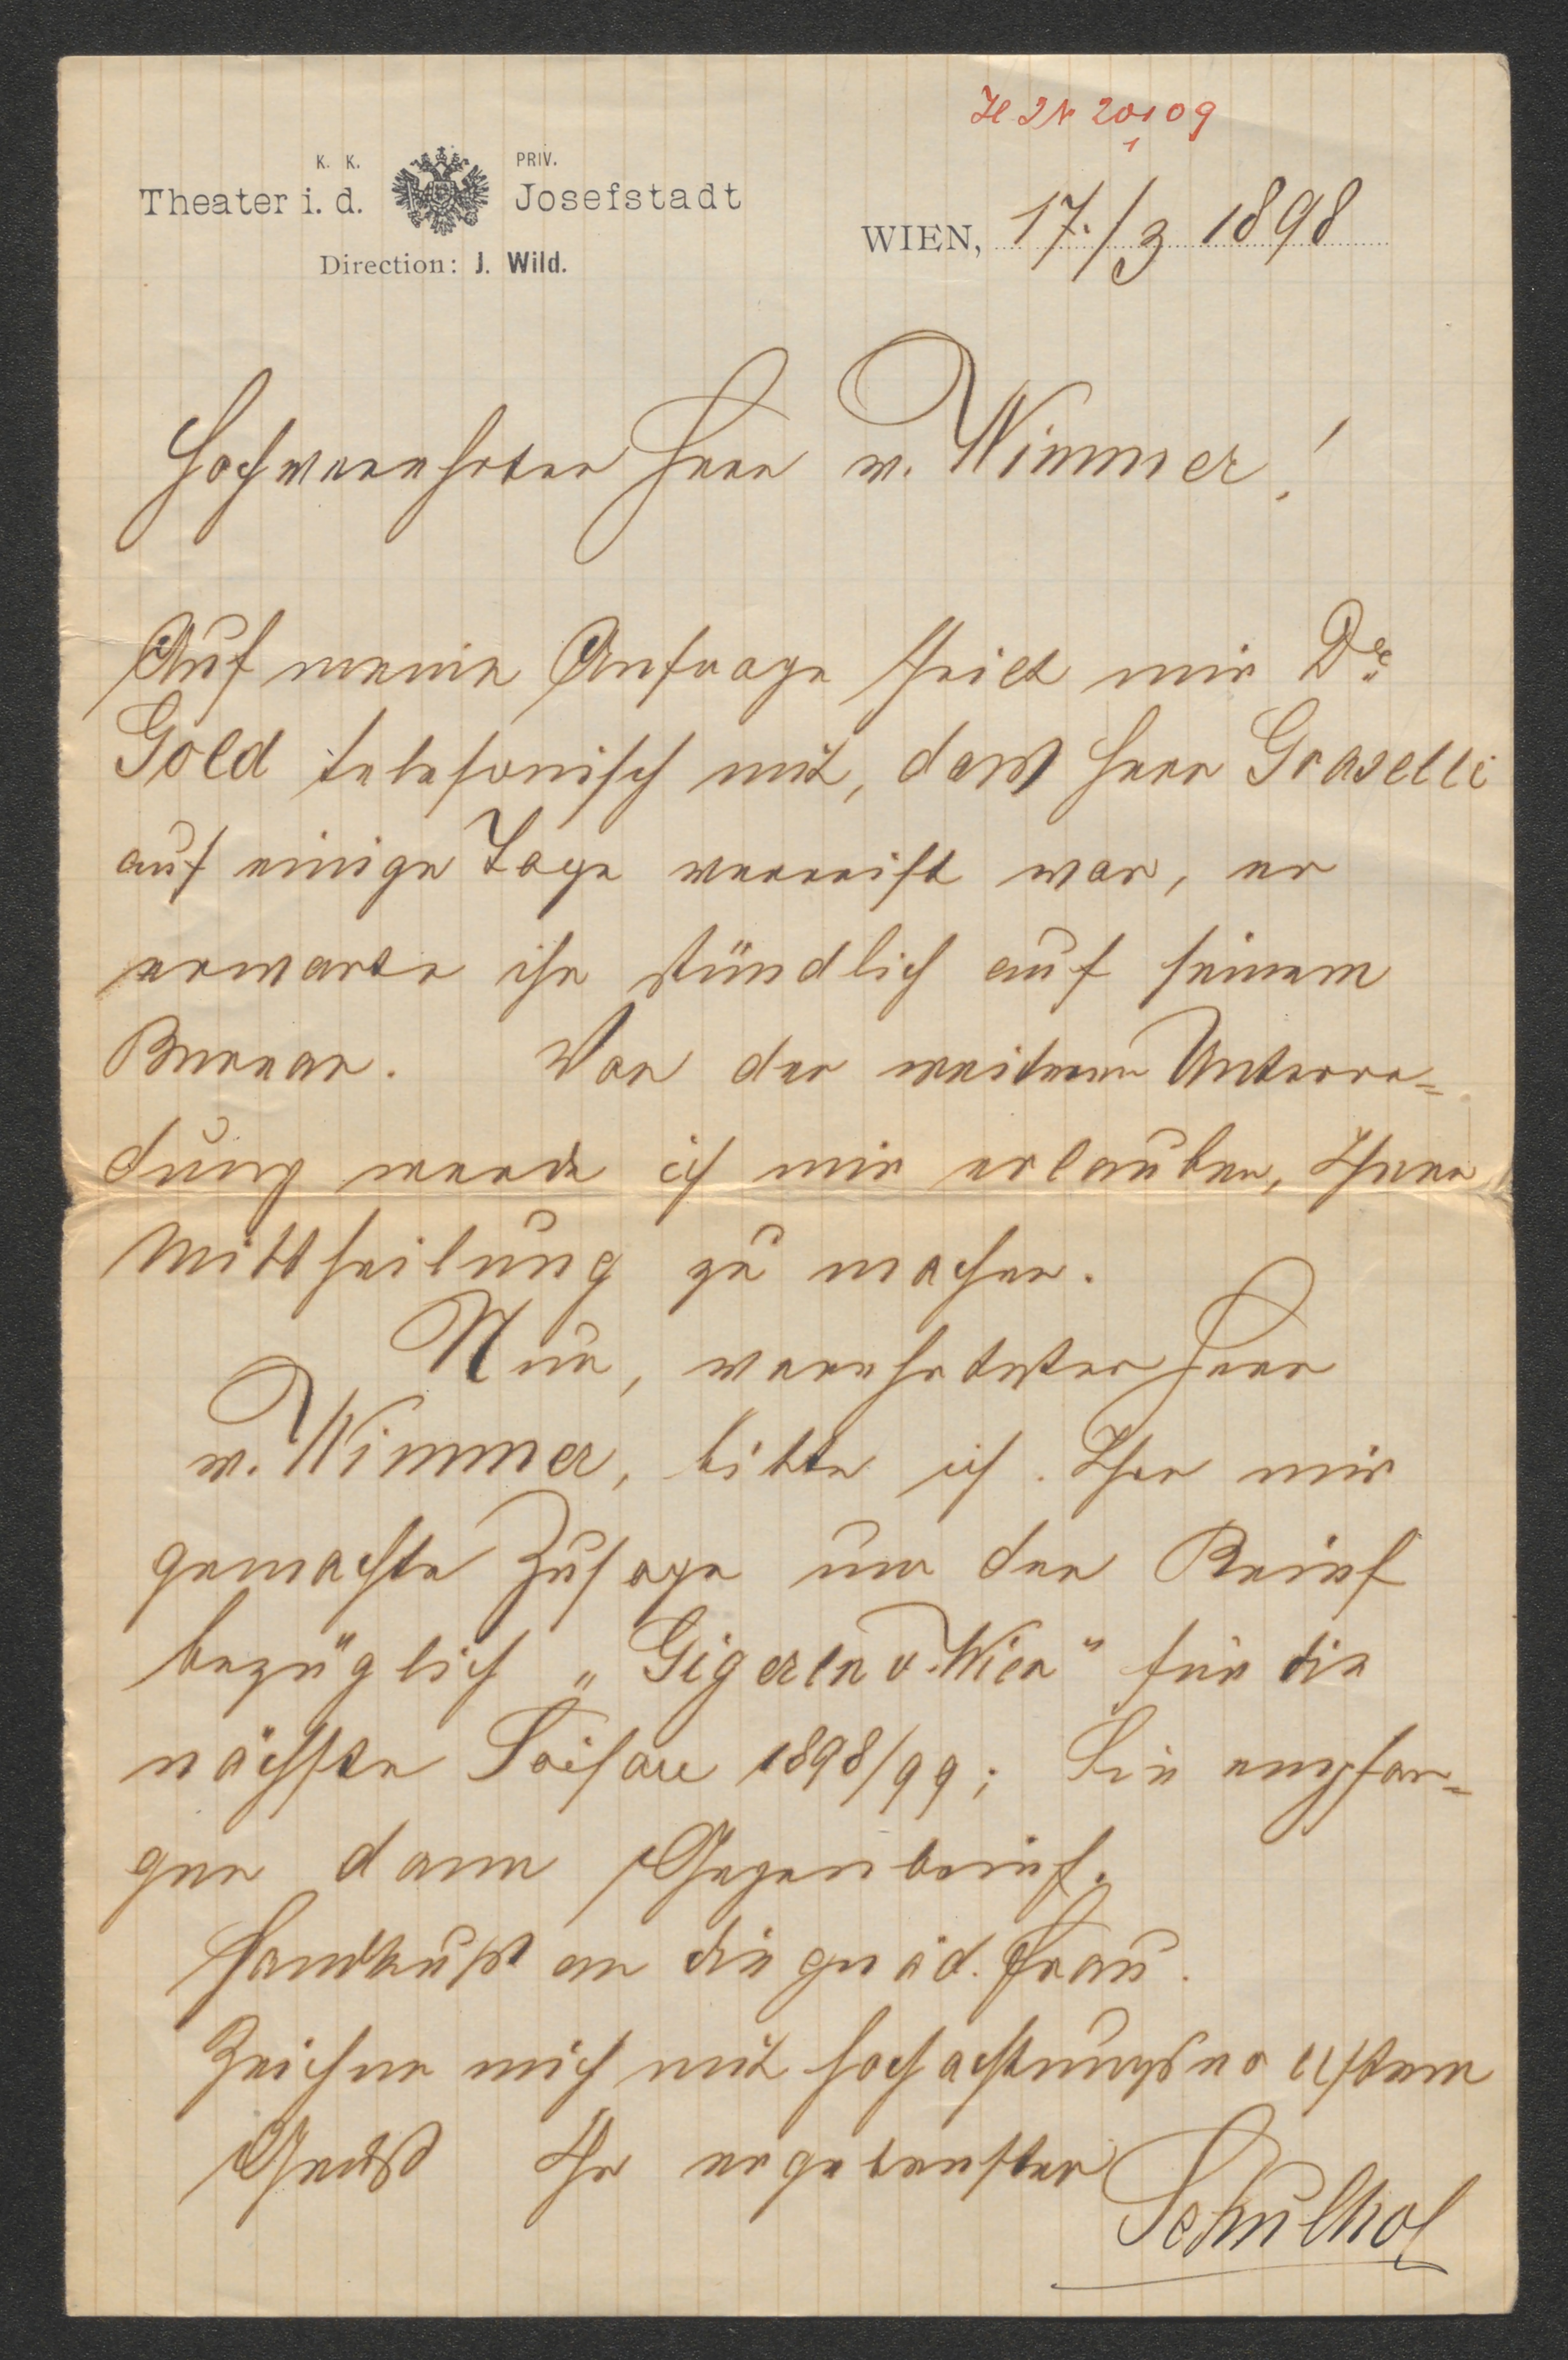 H.I.N. 20109
1
K. K. PRIV.
Theater i. d. Josefstadt
Direction: J. Wild.
WIEN, 17./3 1898
Hochverehrter Herr v. Wimmer!
Auf meine Anfrage theilt mir Dr.
Gold telefonisch mit, dass Herr Graselli
auf einige Tage verreist war, er
erwarte ihn stündlich auf seinem
Bureau. Von der weiteren Unterre=
dung werde ich mir erlauben, Ihnen
Mittheilung zu machen.
Nun, verehrtester Herr
v. Wimmer, bitte ich Ihre mir
gemachte Zusage um den Brief
bezüglich „Gigerln v. Wien" für die
nächste Saison 1898/99; Sie empfan=
gen dann Gegenbrief.
Handkuß an die gnäd. Frau.
Zeichne mich mit hochachtungsvollstem
Gruß Ihr ergebenster
Schulhof